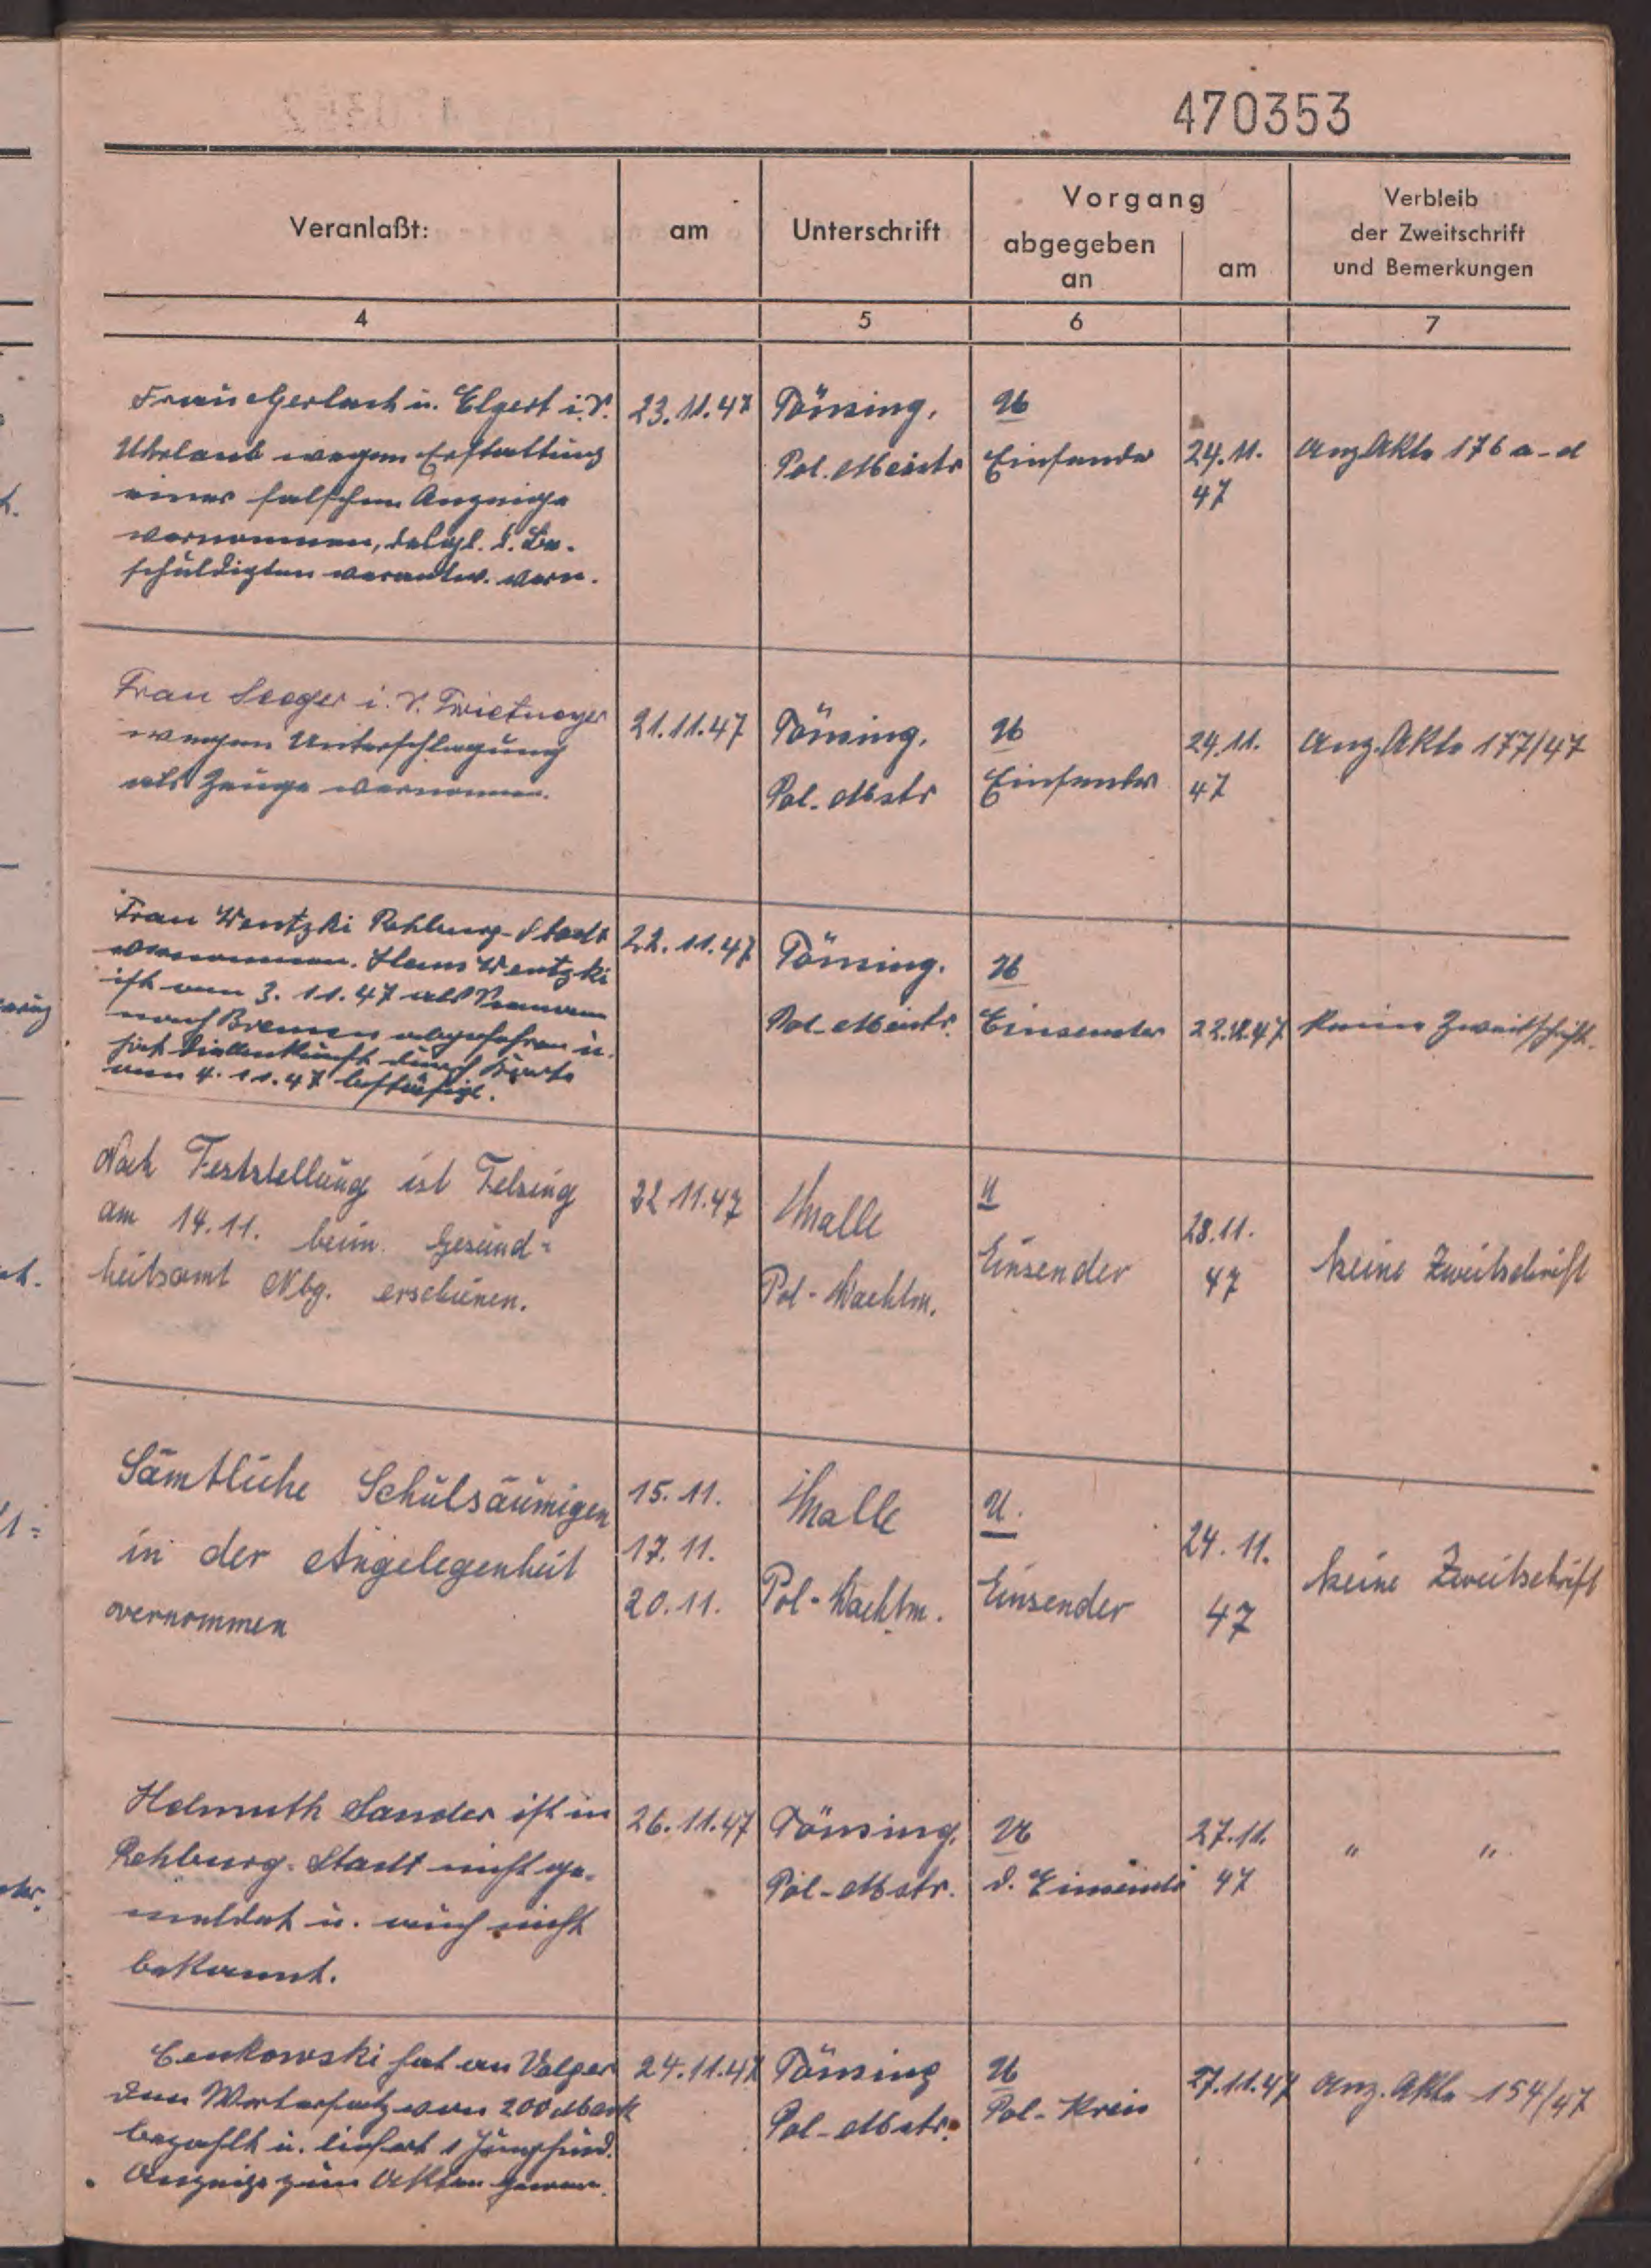 470353
Veranlaßt: am Unterschrift Vorgang abgegeben an am Verbleib der Zweitschrift und Bemerkungen
4 5 6 7
Frau Gerlach u. Elgert i. V.
wegen Erstattung
einer falschen Anzeige
vernommen, desgl. d. Be-
schuldigten verantw. vern.
23.11.47
Pol. Meistr
U
Einsender
24.11.
47
Anz Akte 176 a-d
Frau Seeger i. V. Twietmeyer
wegen Unterschlagung
als Zeuge vernommen.
21.11.47
Pol. Mstr
U
Einsender
24.11.
47
Anz. Akte 177/47
Frau Wentzki Rehburg-Stadt
vernommen. Hans Wentzki
ist am 3.11.47 als Seemann
nach Bremen abgefahren u.
hat durch Karte
am 4.11.47 bestätigt.
22.11.47
Pol. Meistr.
U
Einsender
22.11.47
keine Zweitschrift.
Nach Feststellung ist Felsing
am 14.11. beim Gesund=
heitsamt Nbg. erschienen.
22 11.47
Thalle
Pol-Wachtm.
U
Einsender
28.11.
47
keine Zweitschrift
Sämtliche Schulsäumigen
in der Angelegenheit
vernommen
15.11.
17.11.
20.11.
Thalle
Pol-Wachtm.
U.
Einsender
24.11.
47
keine Zweitschrift
Helmuth Sander ist in
Rehburg-Stadt nicht ge-
meldet u. auch nicht
bekannt.
26.11.47
Pol-Mstr.
U
d. Einsender
27.11.
47
" "
Cenkowski hat an Volger
den Wertersatz von 200 Mark
bezahlt u. liefert 1 Junghund.
Anzeige zum Akten genom.
24.11.47
Pol-Mstr.
U
Pol-Kreis
27.11.47
Anz. Akte 154/47